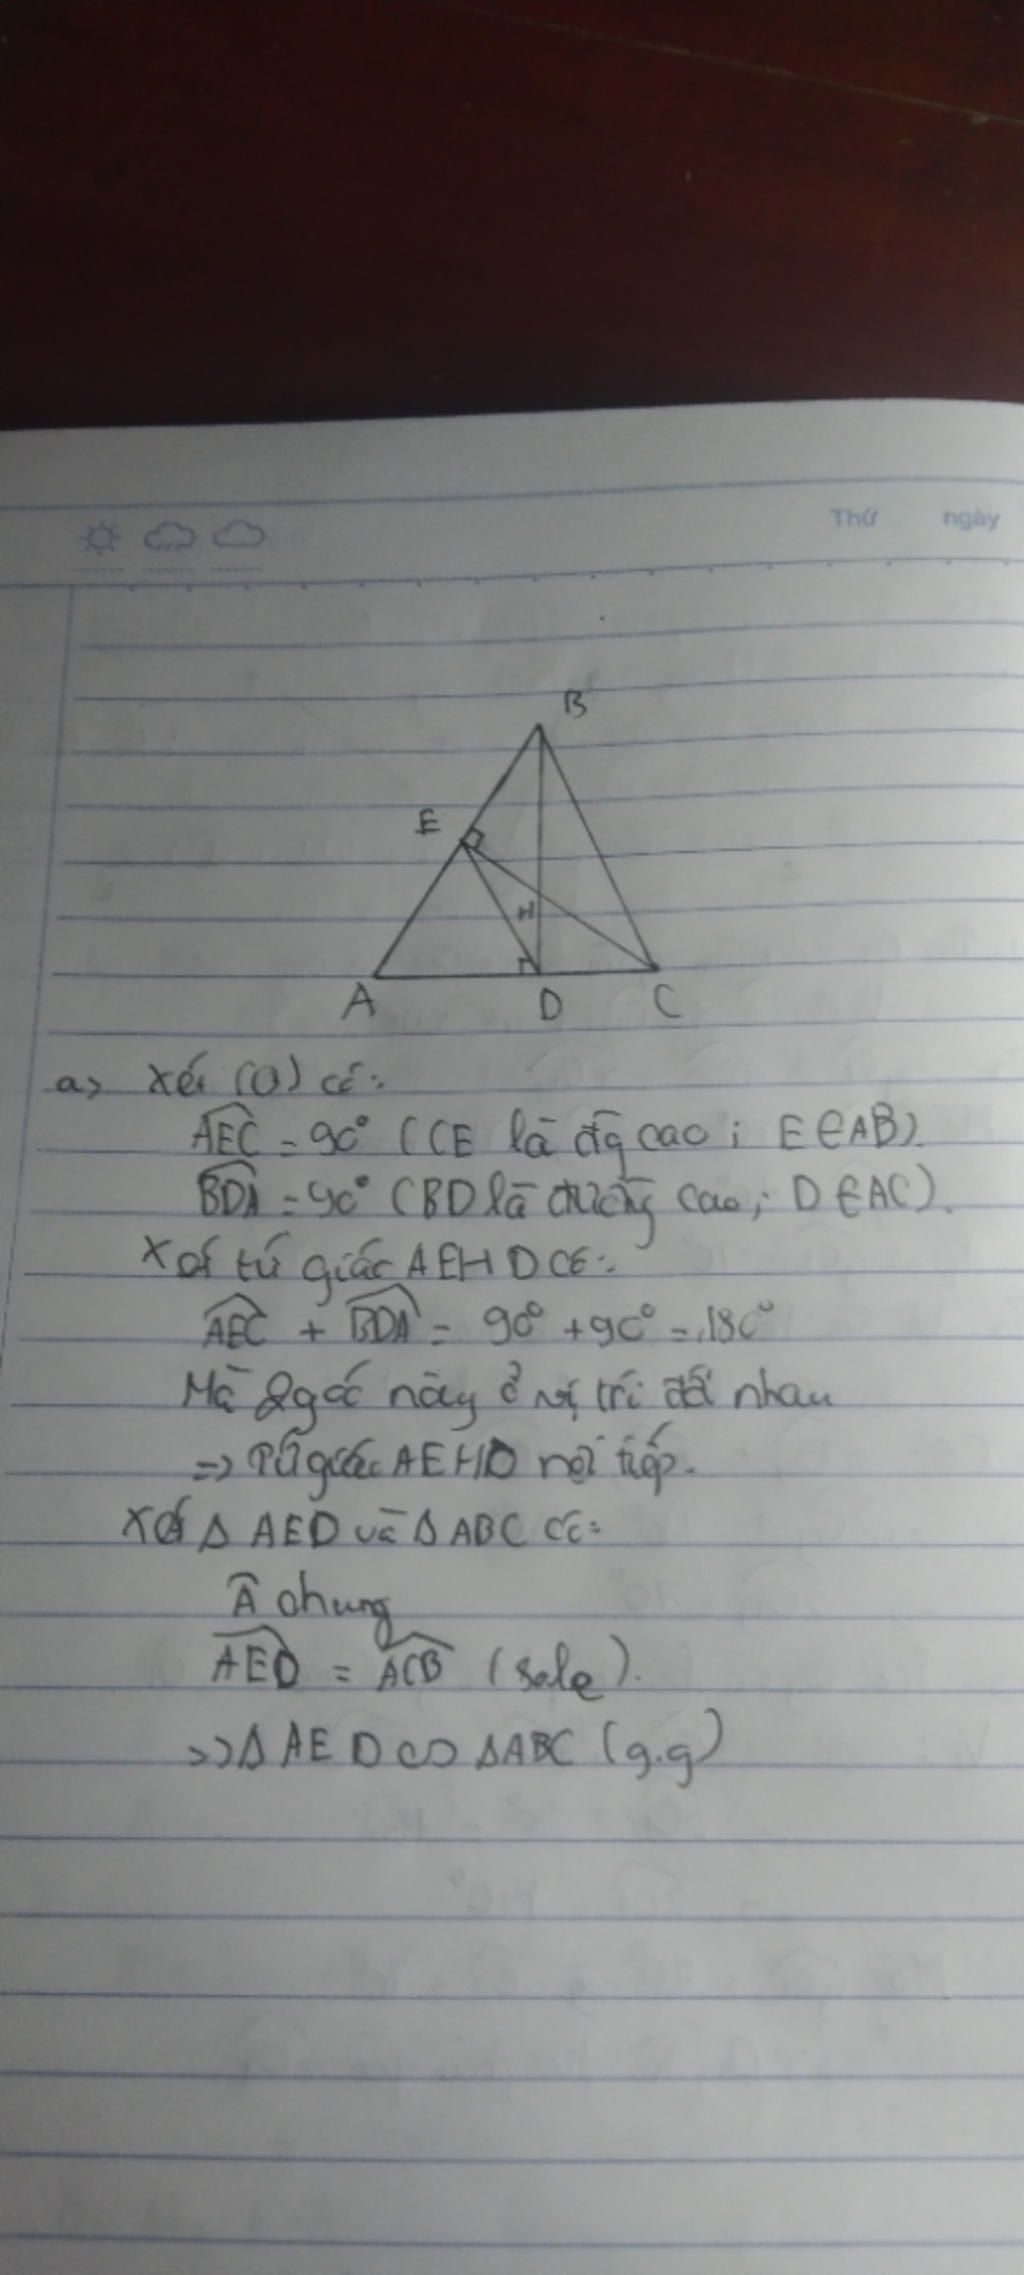 Thứ ngày
B
E
H
A D C
a) Xét (O) có:
AEC = 90° (CE là đg cao; E ∈ AB).
BDA = 90° (BD là đường cao; D ∈ AC).
Xét tứ giác AEHD có:
AEC + BDA = 90° + 90° = 180°
Mà 2 góc này ở vị trí đối nhau
=> Tứ giác AEHD nội tiếp.
Xét Δ AED và Δ ABC có:
A chung
AED = ACB (sole).
=> Δ AED ∽ ΔABC (g.g)